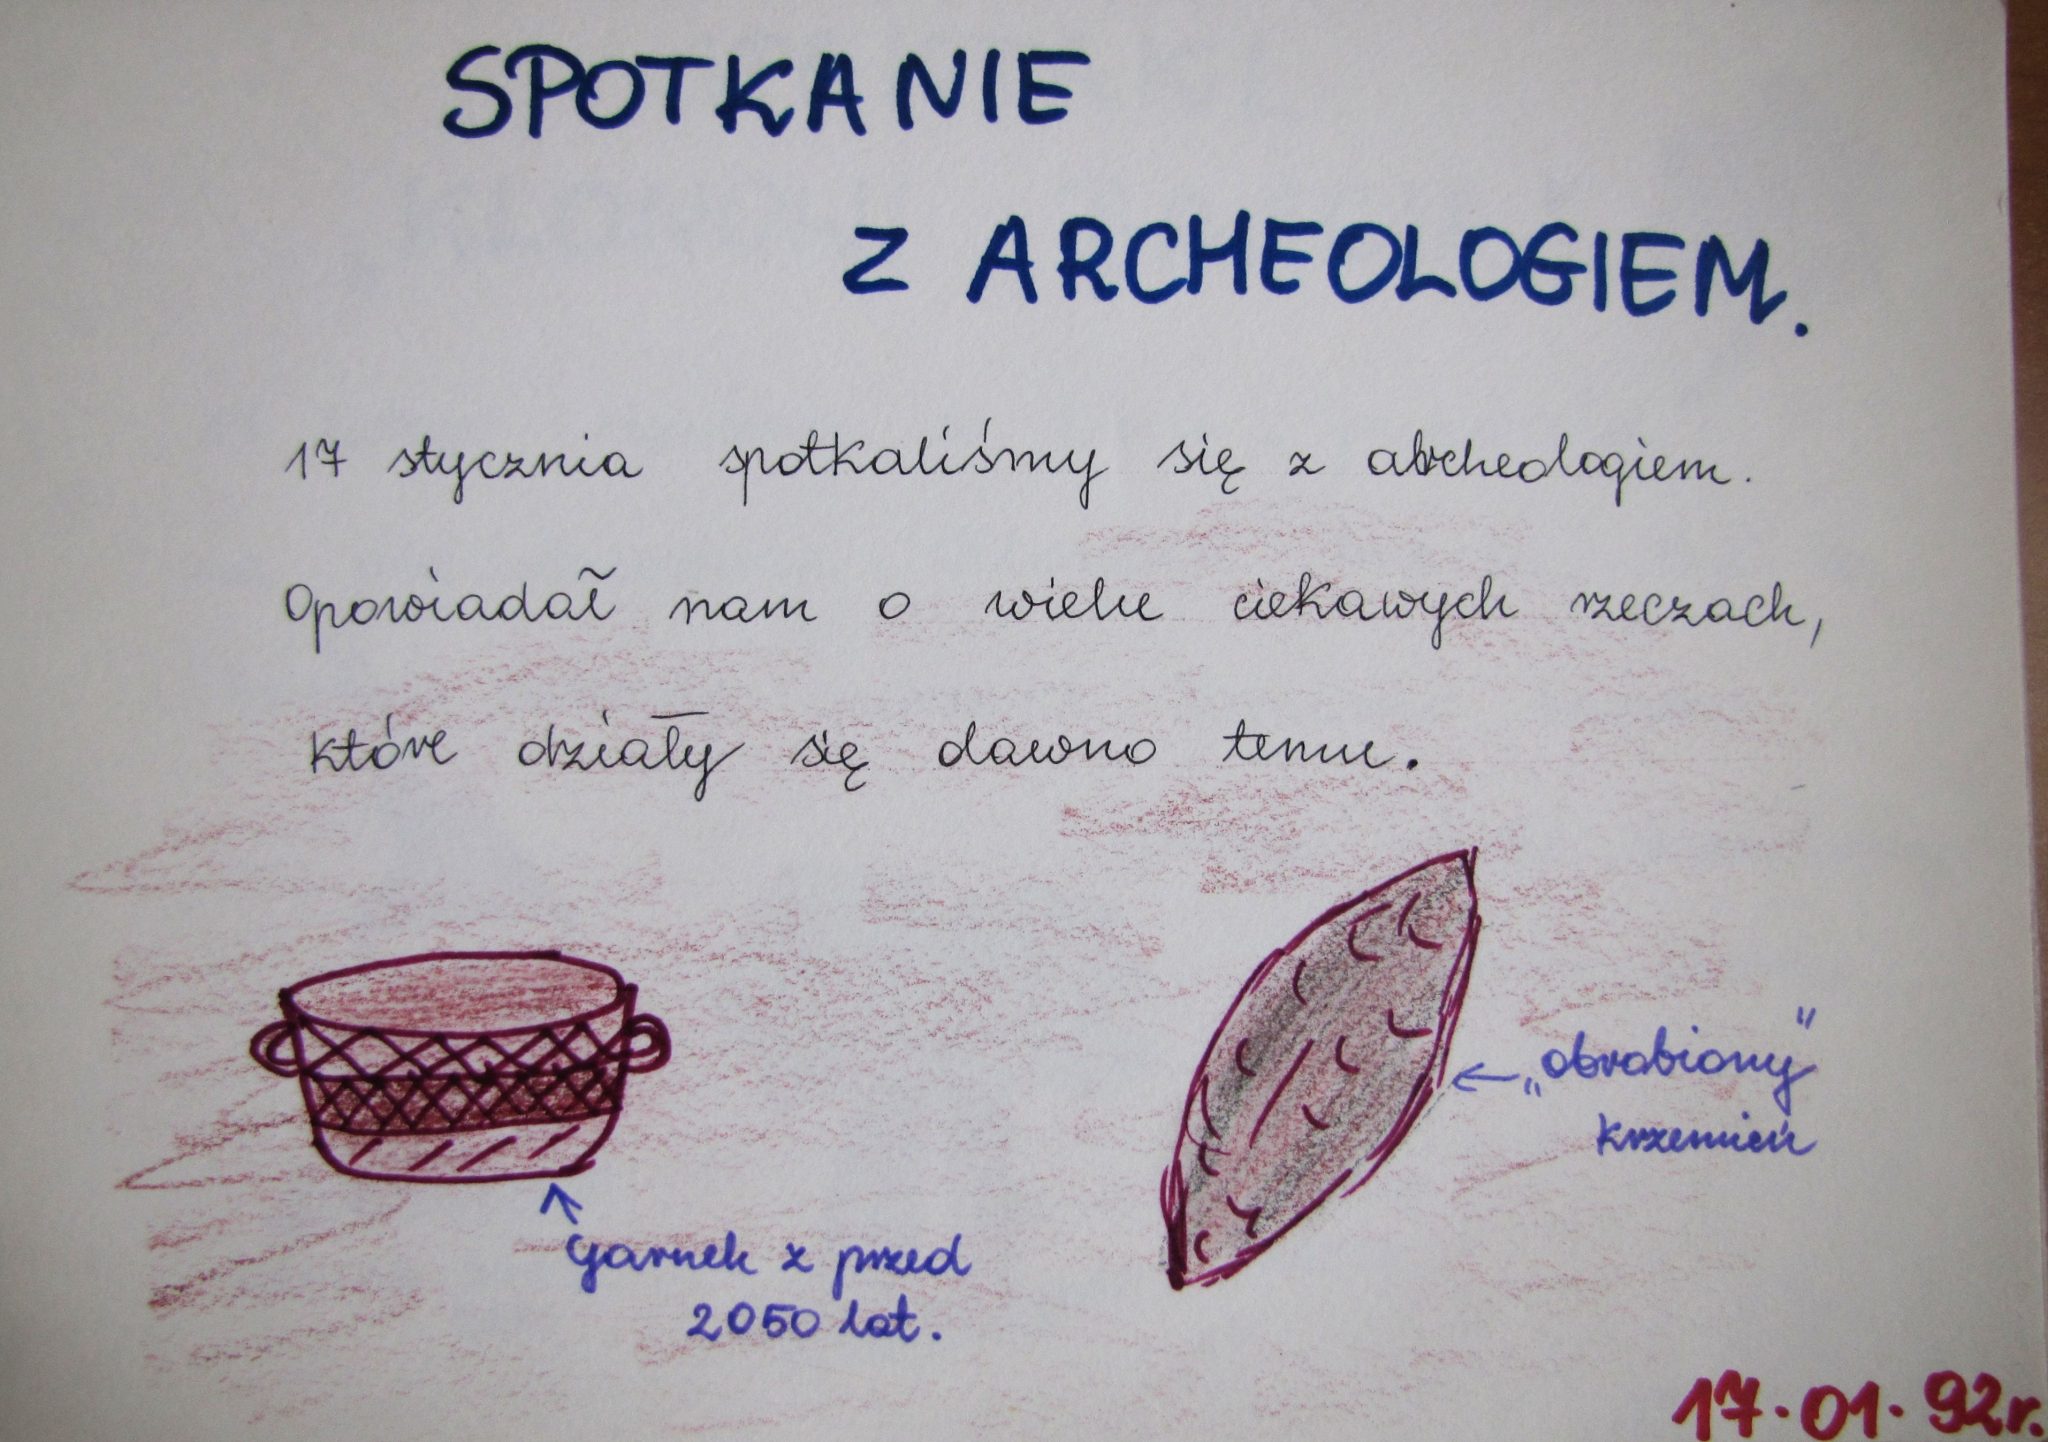 SPOTKANIE
Z ARCHEOLOGIEM.
17 stycznia spotkaliśmy się z archeologiem.
Opowiadał nam o wielu ciekawych rzeczach,
które działy się dawno temu.
„obrabiony”
krzemień
Garnek z przed
2050 lat.
17.01.92r.